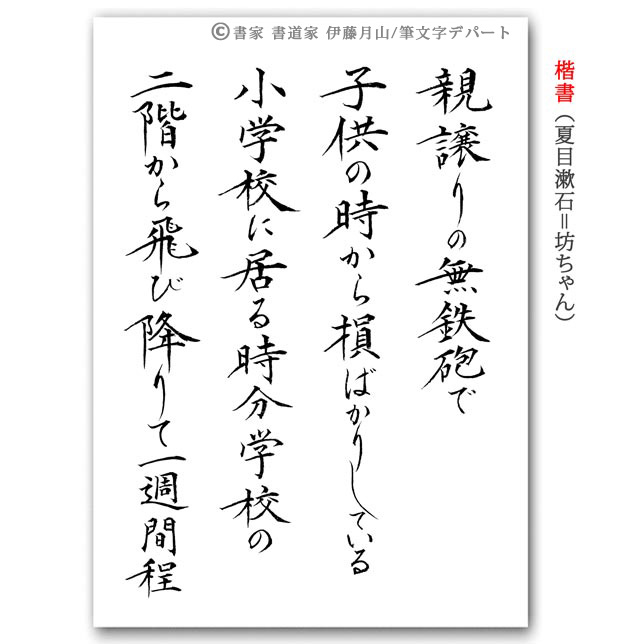 ©書家 書道家 伊藤月山/筆文字デパート
楷書（夏目漱石＝坊ちゃん）
親譲りの無鉄砲で
子供の時から損ばかりしている
小学校に居る時分学校の
二階から飛び降りて一週間程